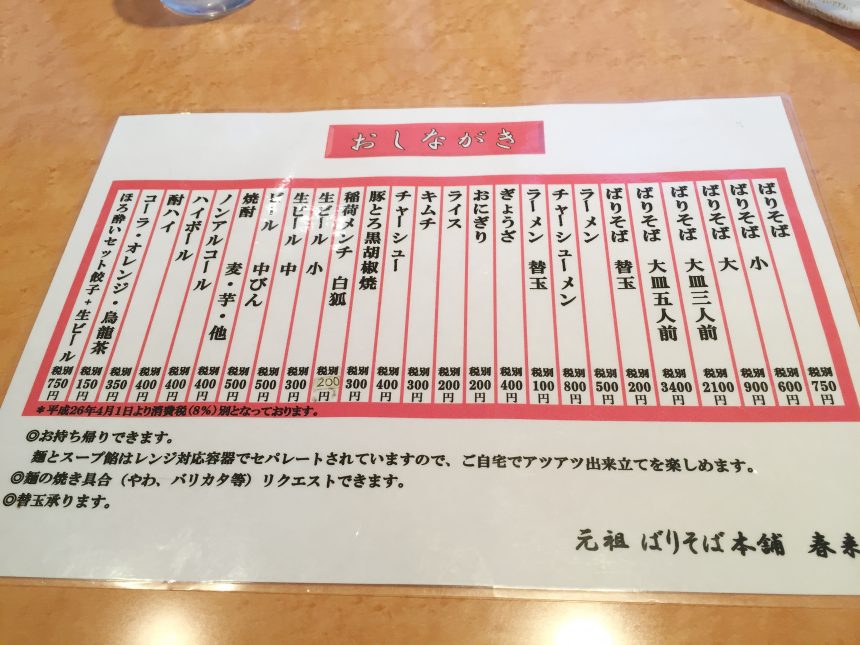 おしながき
ばりそば 税別750円
ばりそば 小 税別600円
ばりそば 大 税別900円
ばりそば 大皿三人前 税別2100円
ばりそば 大皿五人前 税別3400円
ばりそば 替玉 税別200円
ラーメン 税別500円
チャーシューメン 税別800円
ラーメン 替玉 税別100円
ぎょうざ 税別400円
おにぎり 税別200円
ライス 税別200円
キムチ 税別300円
チャーシュー 税別400円
豚とろ黒胡椒焼 税別300円
稲荷メンチ 白狐 税別200円
生ビール 小 税別300円
生ビール 中 税別500円
ビール 中びん 税別500円
焼酎 麦・芋・他 税別400円
ノンアルコール 税別400円
ハイボール 税別400円
酎ハイ 税別350円
コーラ・オレンジ・烏龍茶 税別150円
ほろ酔いセット餃子+生ビール 税別750円
*平成26年4月1日より消費税(8%)別となっております。
◎お持ち帰りできます。
麺とスープ餡はレンジ対応容器でセパレートされていますので、ご自宅でアツアツ出来立てを楽しめます。
◎麺の焼き具合(やわ、バリカタ等)リクエストできます。
◎替玉承ります。
元祖 ばりそば本舗 春来